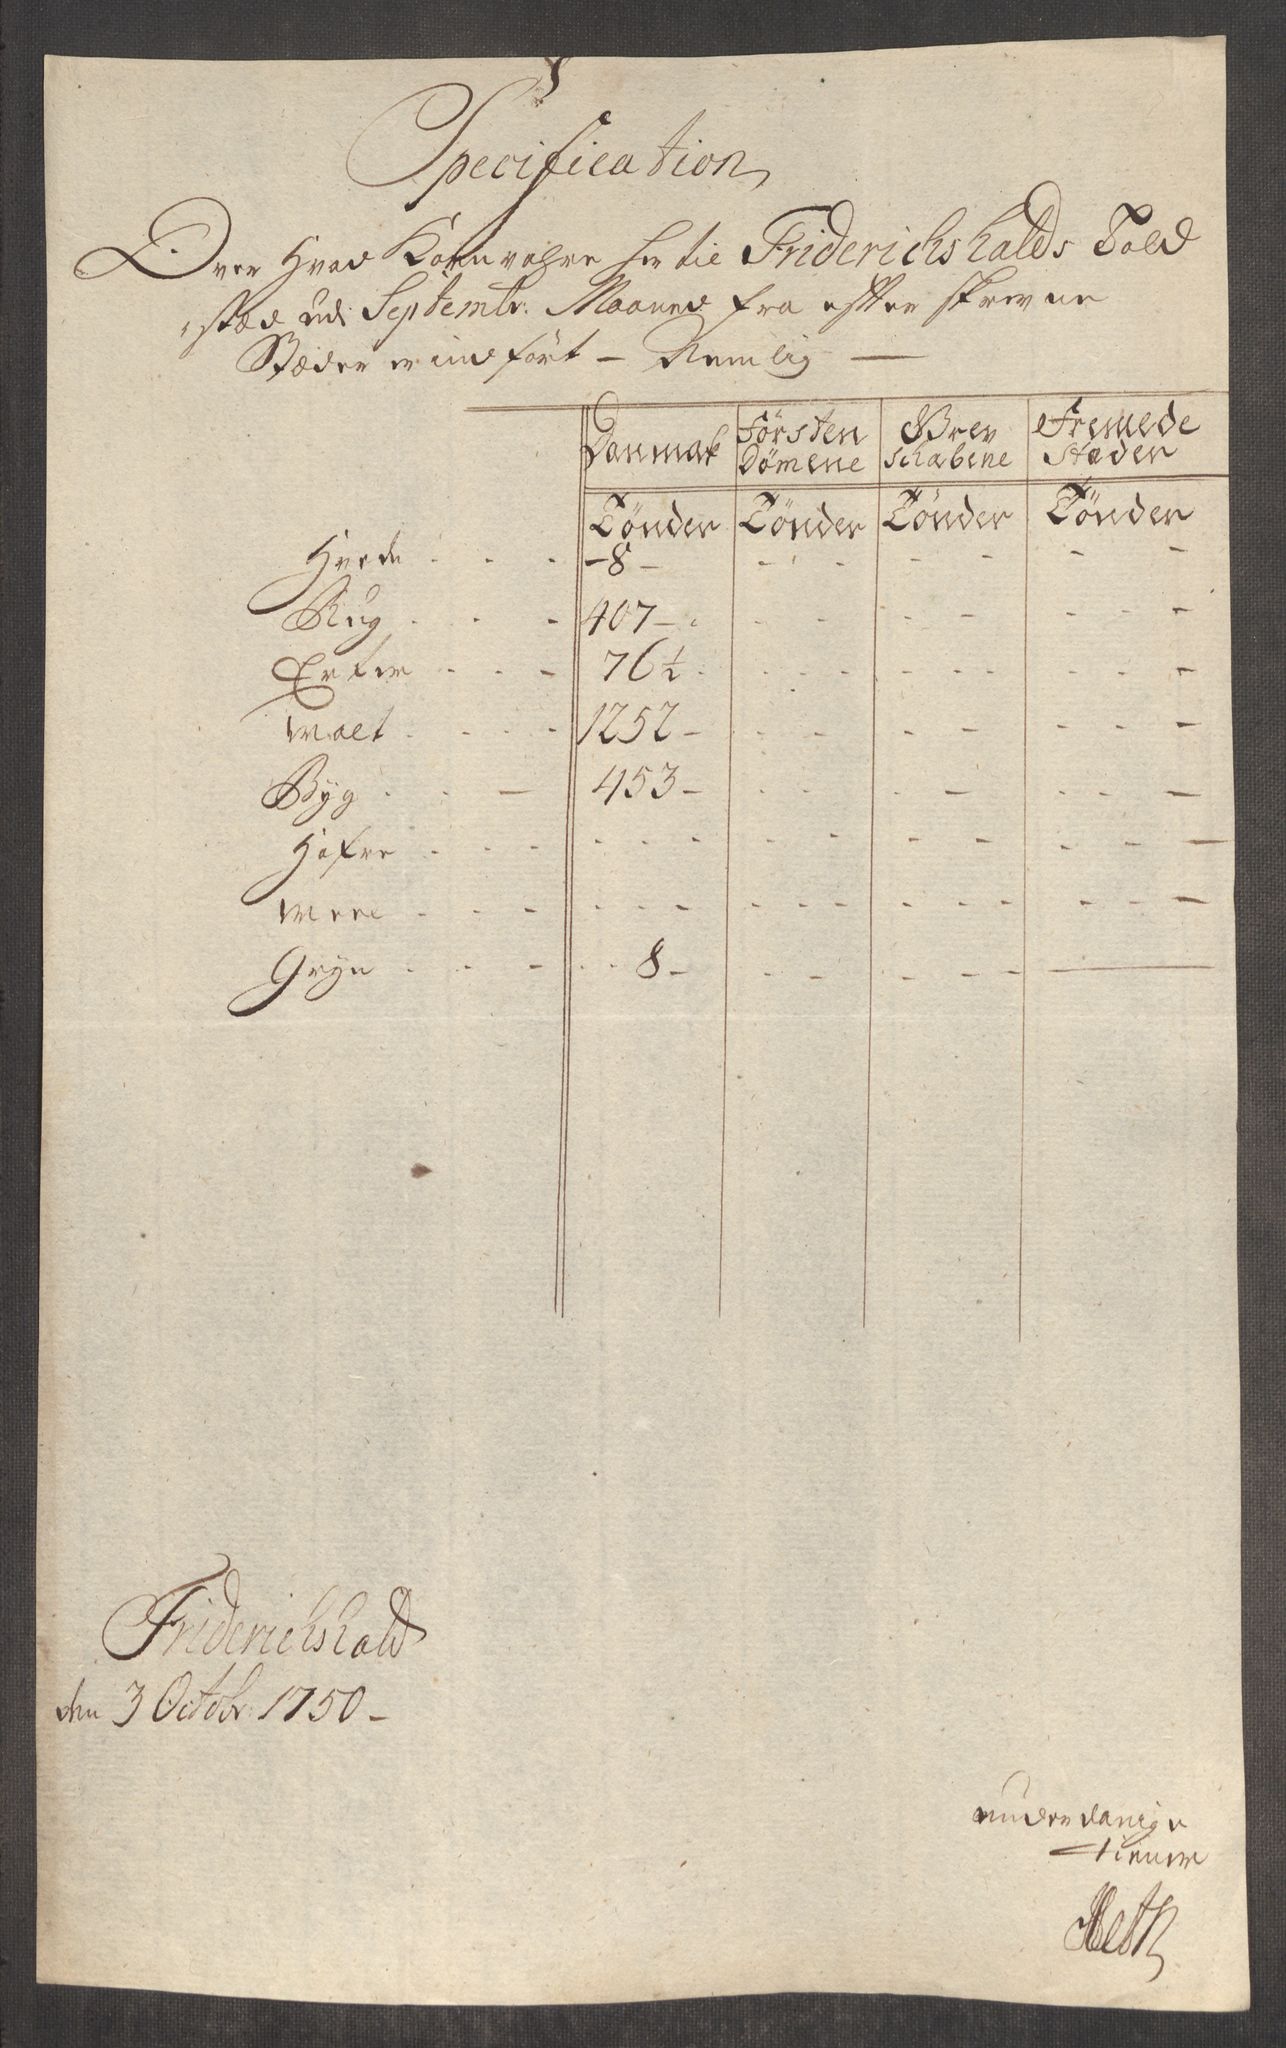 Specification
Over Hvad Kornvahre her til Friderichshalds Told
stæd udi Septembr: Maaned fra efter skrevne
Stæder er indført - Nemlig -
Danmak Førsten Dømene Brev schabene Fremede Stæder
Tönder Tönder Tönder Tönder
Hvede - 8 -
Rug 407 -
Erter 76 1/2
Malt 1252 -
Byg 453 -
Hafre
Meel
Gryn 8 -
Friderichshald
den 3 Octobr: 1750 -
underdanige
tienere